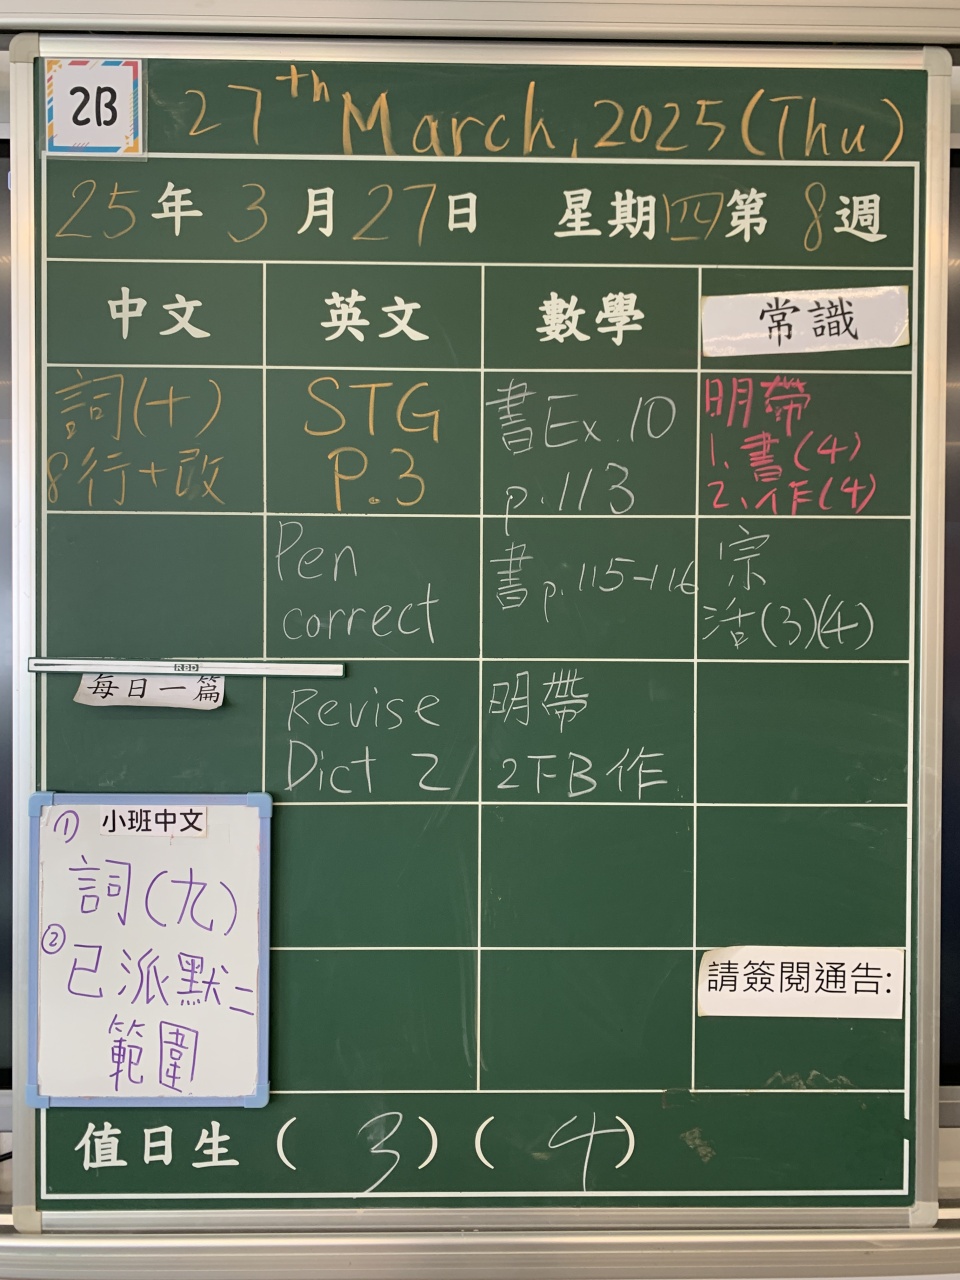 2B
27th March, 2025 (Thu)
25年3月27日 星期四第8週
中文
英文
數學
常識
詞(十)
8行+改
STG
P.3
書Ex.10
p.113
明帶
1.書(4)
2.作(4)
Pen
correct
書p.115-116
宗
活(3)(4)
RBD
每日一篇
Revise
Dict 2
明帶
2下B作
① 小班中文
詞(九)
② 已派默二
範圍
請簽閱通告:
值日生 ( 3 ) ( 4 )